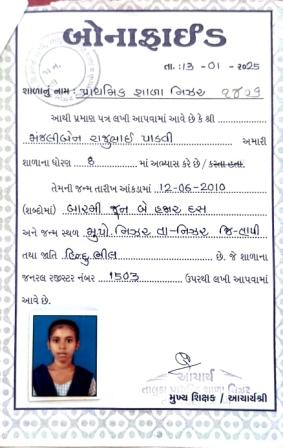 બોનાફાઈડ
તા. :13 - 01 - 2025
શાળાનું નામ : પ્રાથમિક શાળા નિઝર
આથી પ્રમાણ પત્ર લખી આપવામાં આવે છે કે શ્રી
રાજુભાઈ પાડવી અમારી
શાળાના ધોરણ 8 માં અભ્યાસ કરે છે / કરતા હતા.
તેમની જન્મ તારીખ આંકડામાં 12-06-2010
(શબ્દોમાં) બારમી જુન બે હજાર દસ
અને જન્મ સ્થળ મુ.પો. નિઝર તા-નિઝર જિ-તાપી
તથા જાતિ હિન્દુ ભીલ છે. જે શાળાના
જનરલ રજીસ્ટર નંબર 1503 ઉપરથી લખી આપવામાં
આવે છે.
આચાર્ય
તાલુકા પ્રાથમિક શાળા નિઝર
મુખ્ય શિક્ષક / આચાર્યશ્રી